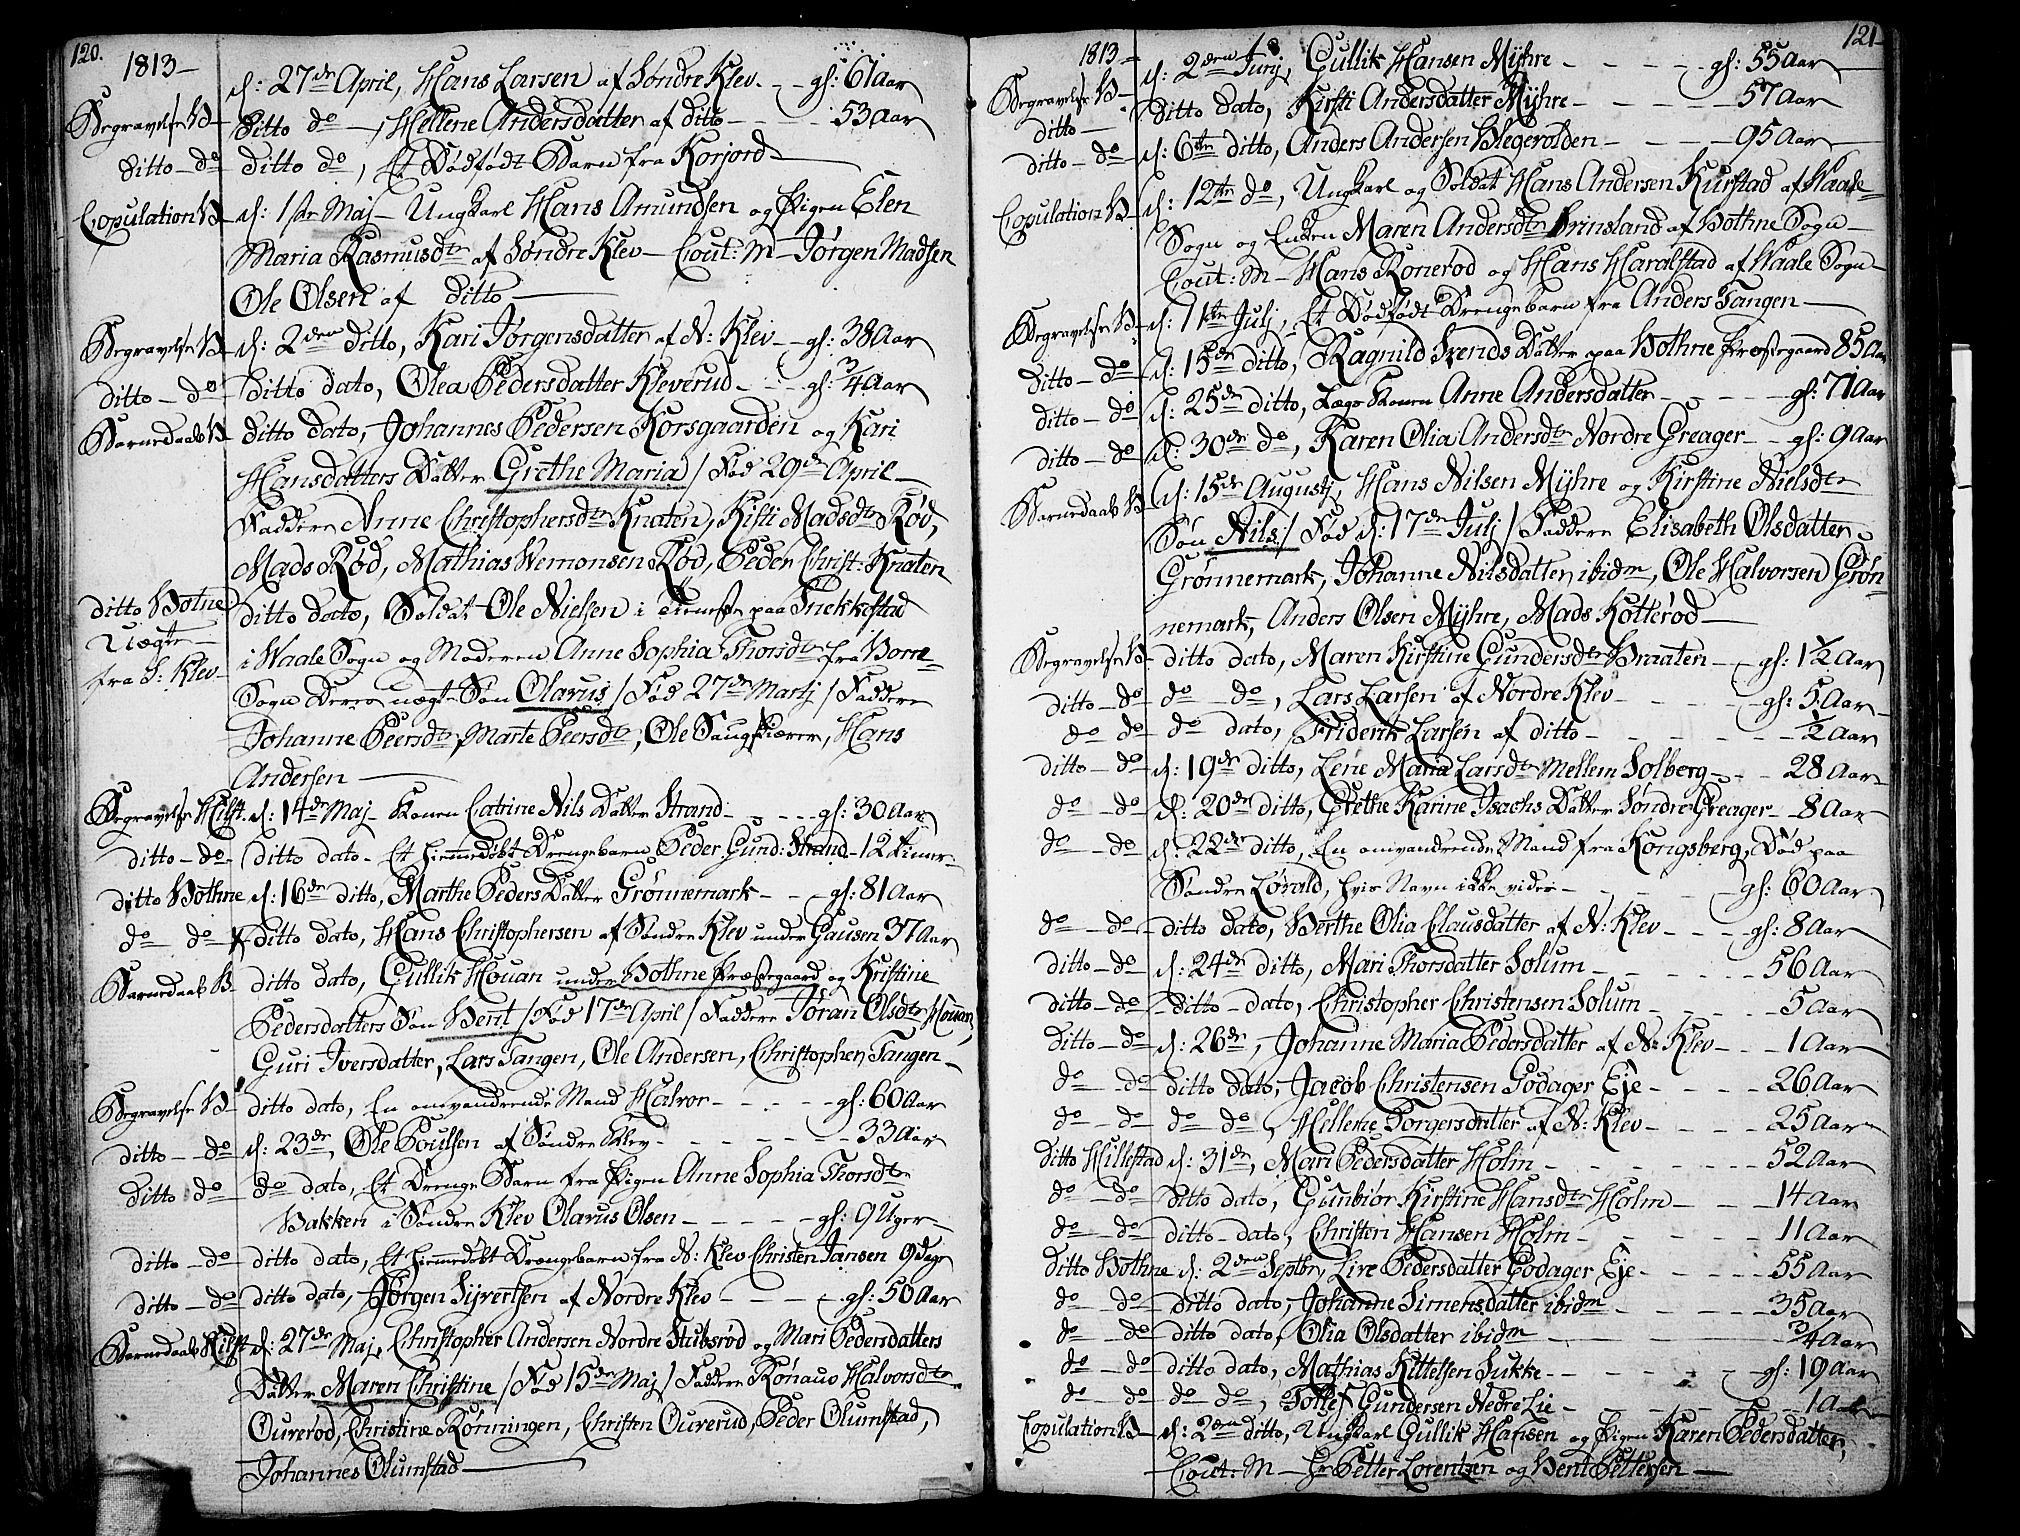 120.
1813 –
d: 27de April, Hans Larsen af Søndre Klev. – – gl: 61 Aar
Begravelse B – Ditto do –, Hellene Andersdatter af ditto – – – – 53 Aar
Ditto – do Ditto do, Et Dødfødt Barn fra Korjord –
Copulation B – d: 1ste Maj – Ungkarl Hans Amundsen og Pigen Elen
Maria Rasmusdtr af Søndre Klev – Cout: M – Jørgen Madsen
Ole Olsen af ditto –
Begravelse B – d: 2den ditto, Kari Jørgensdatter af N: Klev – gl: 38 Aar
ditto – do ditto dato, Olea Pedersdatter Kleverud – – gl: 3/4 Aar
Barnedaab B – ditto dato, Johannes Pedersen Korsgaarden og Kari
Hansdatters Datter Grethe Maria / Fød 29de April –
Faddere Anne Christophersdtr Knaten, Kisti Madsdtr Rød,
Mads Rød, Mathias Wemonsen Rød, Peder Christ: Knaten
ditto Botne ditto dato, Soldat Ole Nielsen i Tieneste paa Snekkestad
Uægte
i Waale Sogn og Moderen Anne Sophia Thorsdtr fra Borre
fra S: Klev –
Sogn Deres uægte Søn Olarus / Fød 27de Martj / Faddere
Johanne Peersdtr, Marte Peersdtr, Ole Saugskiærer, Hans
Andersen –
Begravelse Hilst. d: 14de Maj – Konen Catrine Nils Datter Strand – – – gl: 30 Aar
ditto – do – ditto dato – Et hiemedøbt Drengebarn Peder Gund: Strand – 12 Timer –
ditto Bothne d: 16de ditto, Marthe Peders Datter Grønnemark – – gl: 81 Aar
do do – ditto dato, Hans Christophersen af Søndre Klev under Gausen 37 Aar
Barnedaab B. ditto dato, Gullik Houan under Bothne Præstegaard og Kristine
Pedersdatters Søn Bent / Fød 17de April / Faddere Jøran Olsdtr Houan,
Guri Iversdatter, Lars Tangen, Ole Andersen, Christopher Tangen –
Begravelse B – ditto dato, En omvandrende Mand Halvor – – – gl: 60 Aar
ditto – do d: 23de, Ole Poulsen af Søndre Klev – – – – 33 Aar
ditto do – do dato, Et Drenge Barn fra Pigen Anne Sophia Thorsdtr
Bakken i Søndre Klev Olarus Olsen – – – – gl: 9 Uger –
ditto – do ditto dato, Et hiemedøbt Drengebarn fra N: Klev Christen Jansen 9 Dage
ditto – do ditto dato, Jørgen Sivertsen af Nordre Klev – – – gl: 50 Aar
Barnedaab Hilst. d: 27de Maj, Christopher Andersen Nordre Stubsrød og Mari Pedersdatters
Datter Maren Christine / Fød 15de Maj / Faddere Rønaug Halvorsdtr
Ourerød, Christine Rønningen, Christen Ourerud, Peder Olumstad,
Johannes Olumstad –
121
1813 – d: 2den Junj, Gullik Hansen Myhre – – – – gl: 55 Aar
Begravelse B –
ditto – ditto dato, Kirsti Andersdatter Myhre – – – – 57 Aar
ditto – do d: 6te ditto, Anders Andersen Blegerolden – – – 95 Aar
Copulation B – d: 12te do, Ungkarl og Soldat Hans Andersen Kurstad af Waale
Sogn og Enken Maren Andersdtr Prinsland af Bothne Sogn –
Cout: M – Hans Ronerød og Hans Haralstad af Waale Sogn –
Begravelse B – d: 11te Julj, Et Dødfødt Drengebarn fra Anders Tangen –
ditto – do d: 15de ditto, Ragnild Svends Datter paa Bothne Præstegaard 85 Aar
ditto – do d: 25de ditto, Lægs Konen Anne Andersdatter – – – gl: 71 Aar
ditto – do d: 30de do, Karen Olia Andersdtr Nordre Greager – – gl: 9 Aar
Barnedaab B d: 15de Augustj, Hans Nilsen Myhre og Kirstine Nielsdtr
Søn Nils / Fød d: 17de Julj / Faddere Elisabeth Olsdatter
Grønnemark, Johanne Nilsdatter ibidm, Ole Halvorsen Grøn
nemark, Anders Olsen Myhre, Mads Kotterød –
Begravelse B – ditto dato, Maren Kirstine Gundersdtr Braaten – gl: 1 1/2 Aar
ditto – do do – do, Lars Larsen af Nordre Klev – – – gl: 5 Aar –
do do do dato, Friderik Larsen af ditto – – – – 1/2 Aar
ditto – do d: 19de ditto, Lene Maria Larsdtr Mellem Solberg – – 28 Aar –
do – do d: 20de ditto, Grethe Karine Isachs Datter Søndre Greager – 8 Aar
do – do d: 22de ditto, En omvandrende Mand fra Kongsberg, Død paa
Søndre Lørald, hvis Navn ikke vides – – – gl: 60 Aar
do – do – ditto dato, Berthe Olia Clausdatter af N: Klev – – – gl: 8 Aar
ditto – do d: 24de ditto, Mari Thorsdatter Solum – – – – 56 Aar
ditto – do – ditto – dato, Christopher Christensen Solum – – – 5 Aar
ditto – do d: 26de, Johanne Maria Pedersdatter af N: Klev – – 1 Aar
do – do ditto dato, Jacob Christensen Godager Eje – – – 26 Aar
do – do do do, Hellene Torgersdatter af N: Klev – – – 25 Aar –
ditto Hillestad d: 31de, Mari Pedersdatter Holm – – – – 52 Aar
do – do ditto dato, Gunbiør Kirstine Hansdtr Holm – – – 14 Aar
do – do ditto – dato, Christen Hansen Holm – – – – 11 Aar
ditto Bothne d: 2den Septbr, Live Pedersdatter Godager Eje – – – 55 Aar
do – do ditto dato, Johanne Simensdatter ibidm – – – – 35 Aar
do – do ditto dato, Olia Olsdatter ibidm – – – – 3/4 Aar
do – do ditto dato, Mathias Kittelsen Sukke – – – gl: 19 Aar
do – do do do, Tollef Gundersen Nedre Lie – – – – 1 Aar
Copulation B – d: 2den ditto, Ungkarl Gullik Hansen og Pigen Karen Pedersdatter,
– Cout: M – Hr Petter Lorentzen og Bent Pettersen –